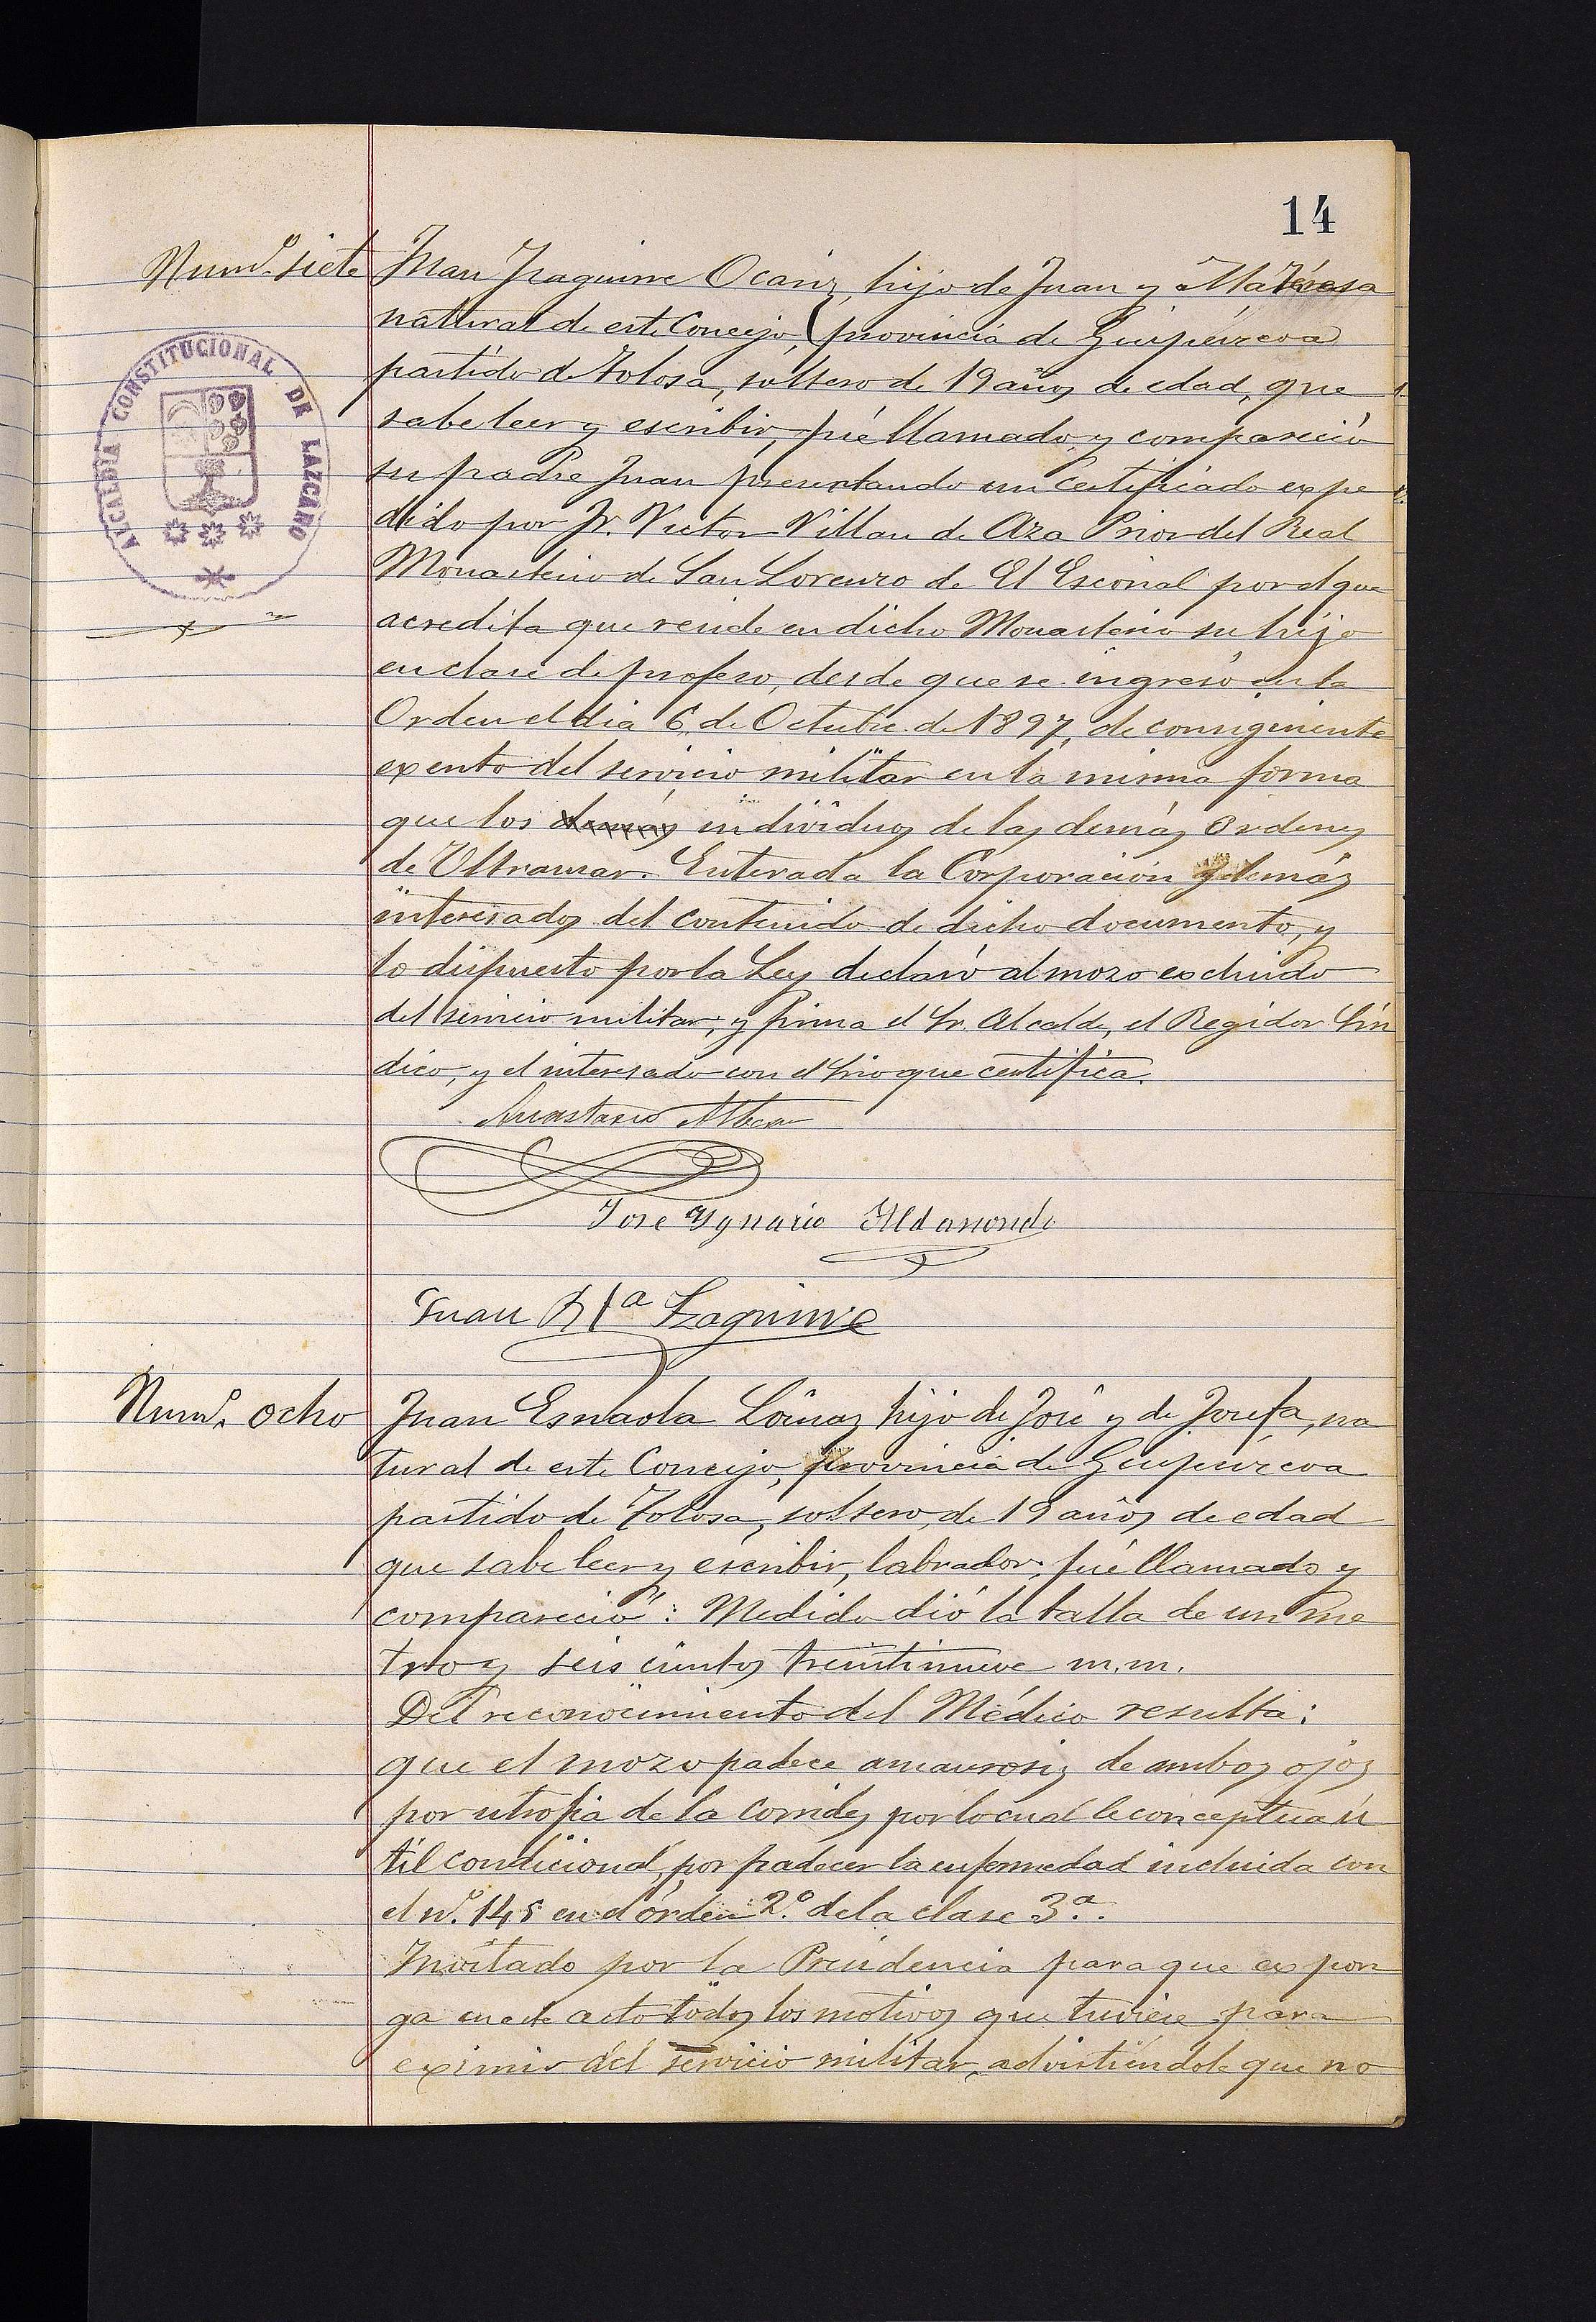 14
Num.º siete
Juan Izaguirre Ocariz, hijo de Juan y Mª Teresa
natural de este Concejo, provincia de Guipúzcoa
partido de Tolosa, soltero de 19 años de edad, que
sabe leer y escribir, fué llamado y compareció
su padre Juan presentando un Certificado expe
dido por Fr. Victor Villan de Aza Prior del Real
Monasterio de San Lorenzo de El Escorial por el que
acredita que reside en dicho Monasterio su hijo
en clase de profeso, desde que se ingresó en la
Orden el dia 6 de Octubre de 1897, de consiguiente
exento del servicio militar en la misma forma
que los demás individuos de las demás Ordenes
de Ultramar. Enterada la Corporación y demás
interesados del contenido de dicho documento, y
lo dispuesto por la Ley declaró al mozo escluido
del servicio militar, y firma el Sr. Alcalde, el Regidor Sin
dico, y el interesado con el Srio que certifica.
ALCALDIA CONSTITUCIONAL DE LAZCANO
Anastasio
Jose Ygnacio Aldasoro
Juan Mª Izaguirre
Num.º ocho
Juan Esnaola Loinaz hijo de José y de Josefa, na
tural de este Concejo, provincia de Guipúzcoa
partido de Tolosa, soltero, de 19 años de edad
que sabe leer y escribir, labrador, fué llamado y
compareció: Medido dió la talla de un me
tro y seis cientos treintinueve m.m.
Del reconocimiento del Médico resulta:
que el mozo padece amaurosis de ambos ojos
por utrofia de la por lo cual le conceptua ú
til condicional por padecer la enfermedad incluida con
el nº. 145 en el órden 2.º de la clase 3.ª.
Invitado por la Presidencia para que espon
ga en este acto todos los motivos que tuviese para
eximir del servicio militar, advirtiéndole que no